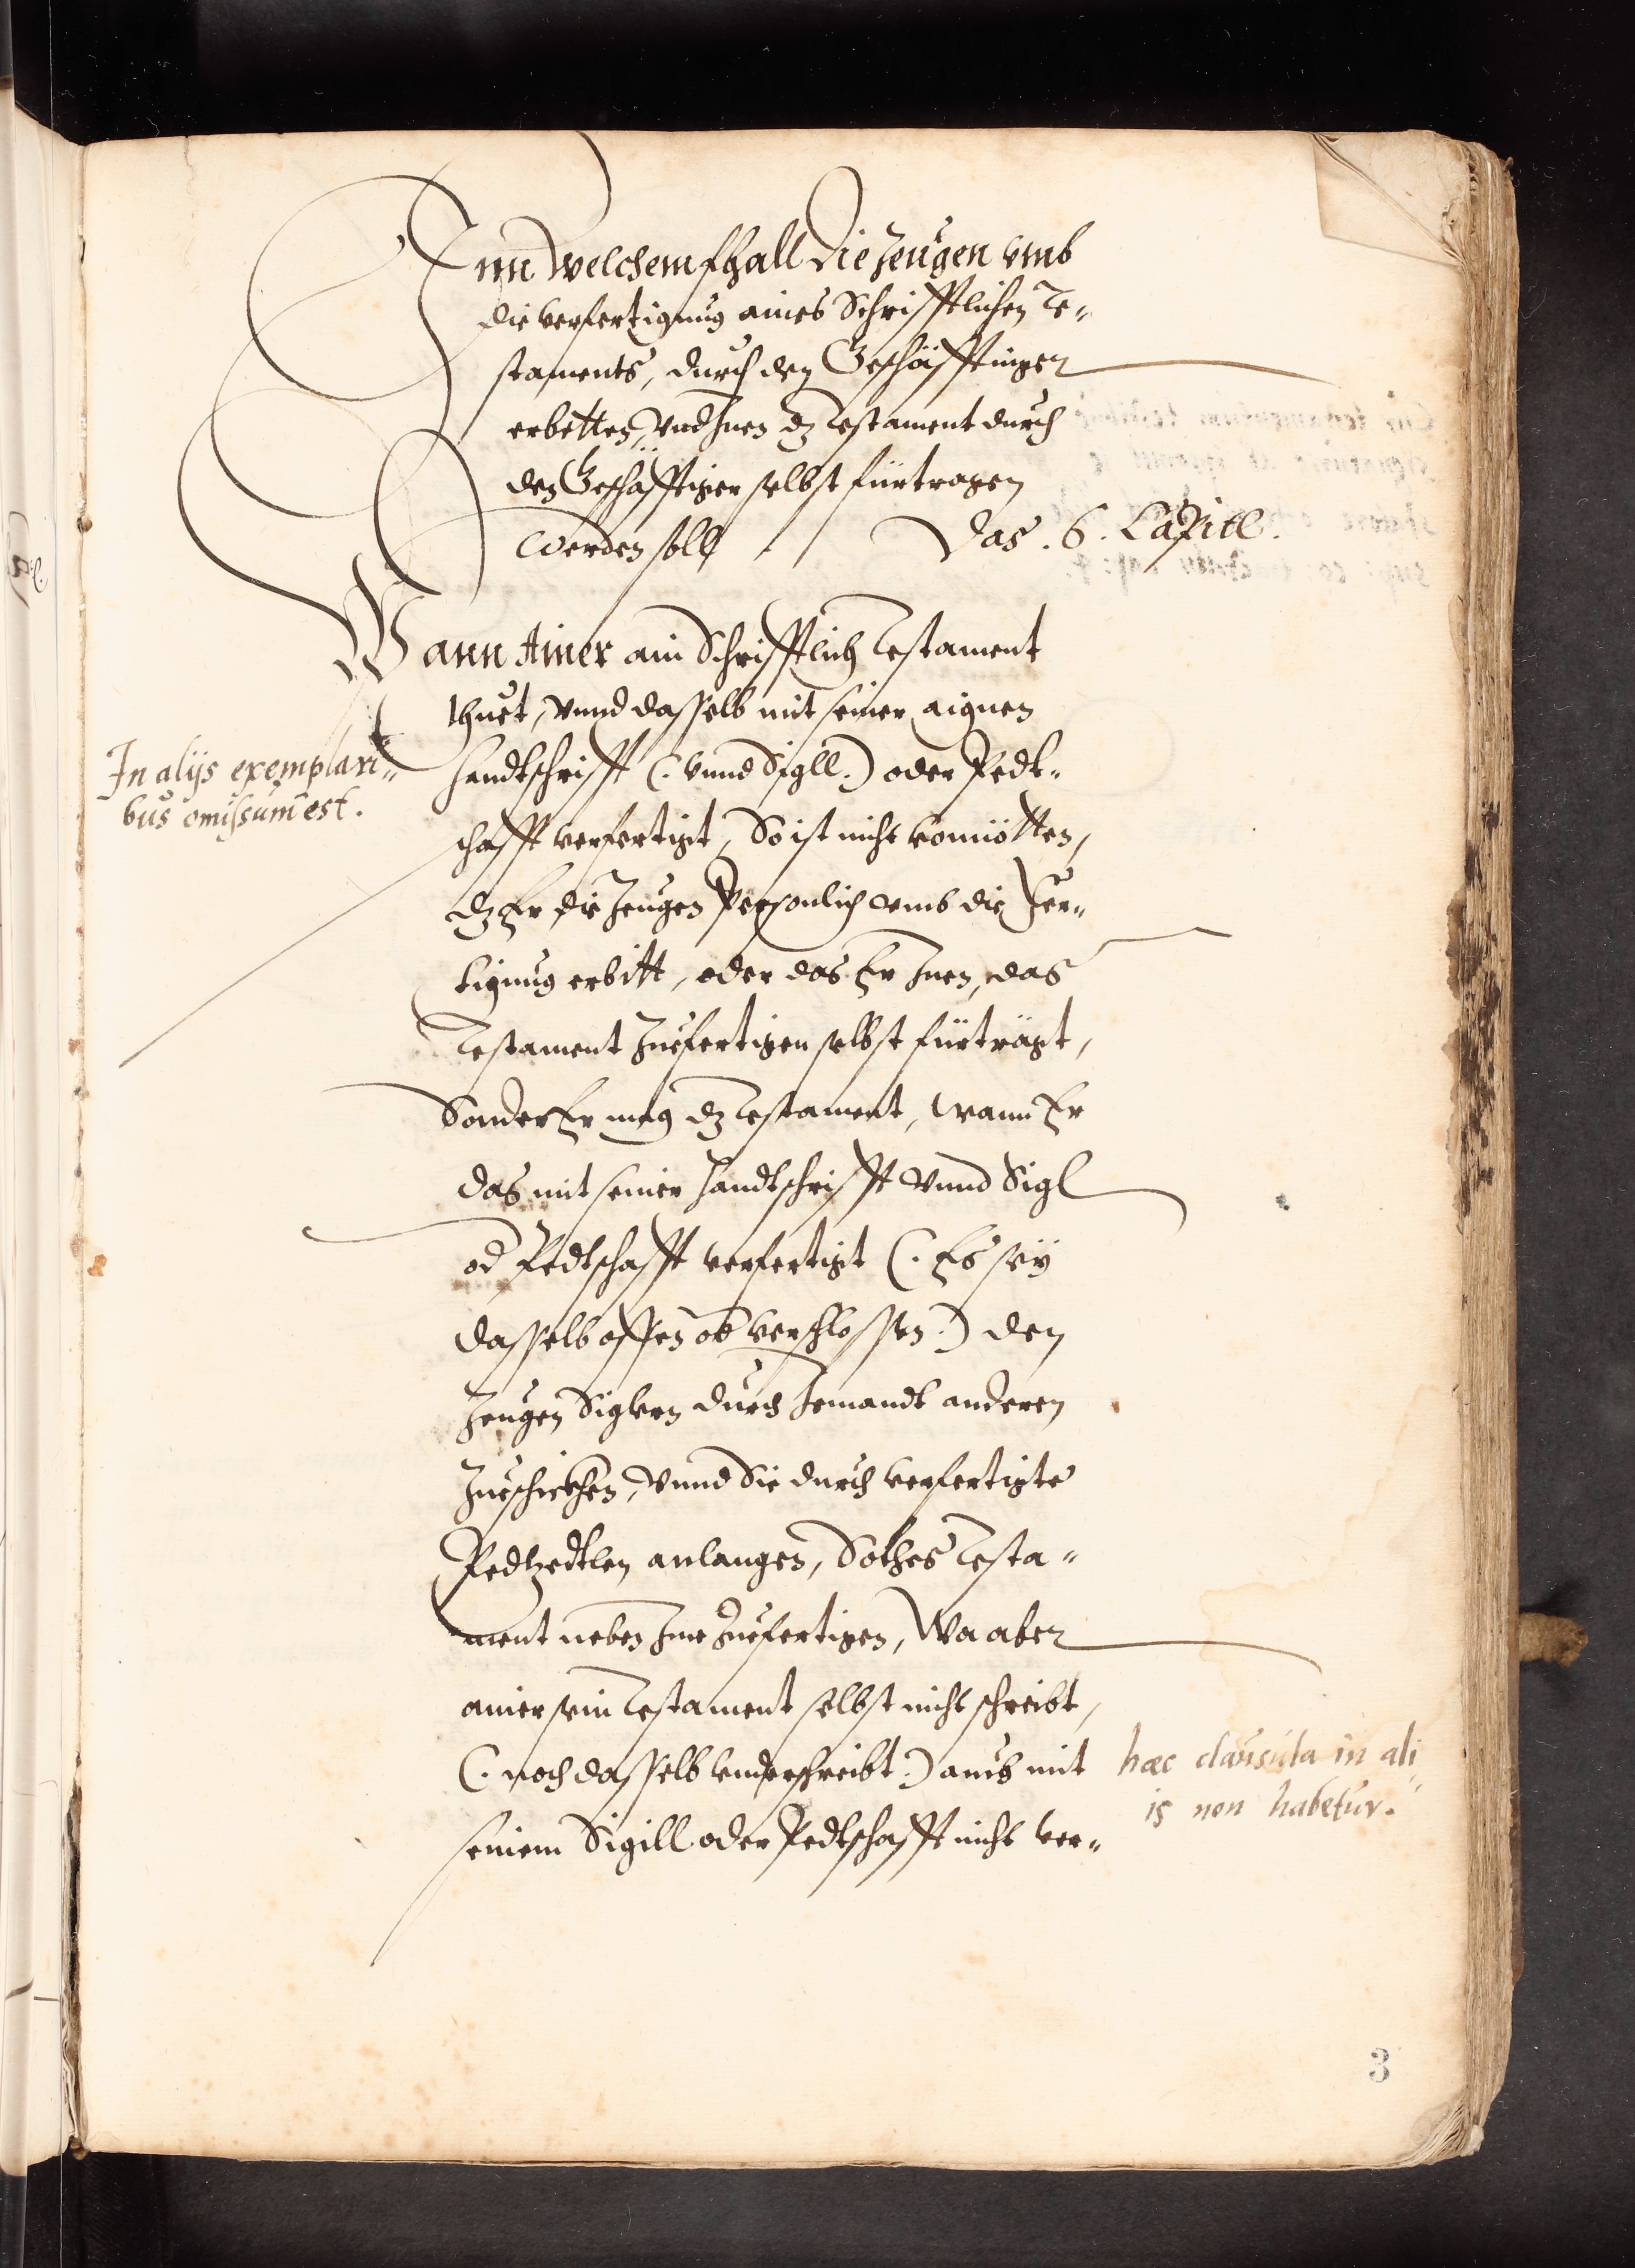 Inn welchem fhall die Zeugen vmb
die verfertigung aines Schrifftlichen Te„
staments, durch den Geschäfftinger
erbetten, vnd Inen dz Testament durch
den Geschäfftiger selbst fürtragen
werden soll / Das .6. Capitl.
Wann Ainer ain Schrifftlich Testament
thuet, vnnd dasselb mit seiner aignen
In alijs exemplari„
bus omissum est.
Handtschrifft (: vnnd Sigll :) oder Pedt„
schafft verfertigt, So ist nicht vonnötten,
dz Er die Zeugen Personlich vmb die Fer„
tigung erbitt, oder das Er Inen, das
Testament Zuefertigen selbst fürträgt,
Sonder Er mag dz Testament, wann Er
das mit seiner Handtschrifft vnnd Sigl
od Pedtschafft verfertigt (: Es seÿ
dasselb offen od verschlossen :) den
Zeugen Siglern durch Jemandt anderen
Zueschickhen, vnnd Sie durch verfertigte
Pedtzedtlen anlangen, Solhes Testa„
ment neben Ime Zuefertigen, Wa aber
ainer sein Testament selbst nicht schreibt,
(: noch dasselb vnderschreibt :) auch mit
hæc clausula in ali„
is non habetur.
seinem Sigill oder Pedtschafft nicht ver„
3